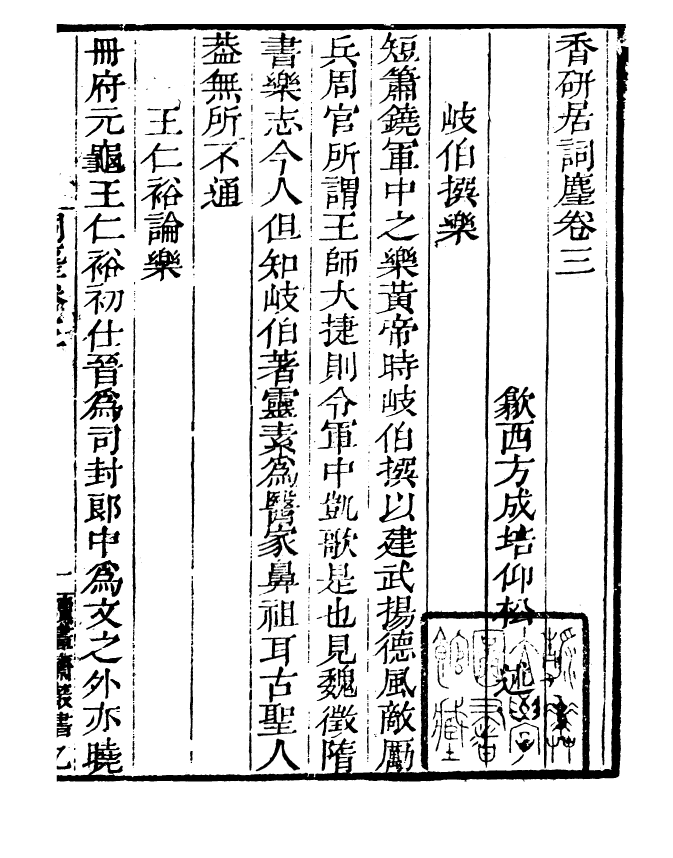 香研居詞麈卷三
歙西方成培仰松 述
岐伯撰樂
短簫鐃軍中之樂黃帝時岐伯撰以建武揚德風敵勵
兵周官所謂王師大捷則令軍中凱歌是也見魏徵隋
書樂志今人但知岐伯著靈素為醫家鼻祖耳古聖人
葢無所不通
王仁裕論樂
冊府元龜王仁裕初仕晉為司封郎中為文之外亦曉
讀畫齋叢書